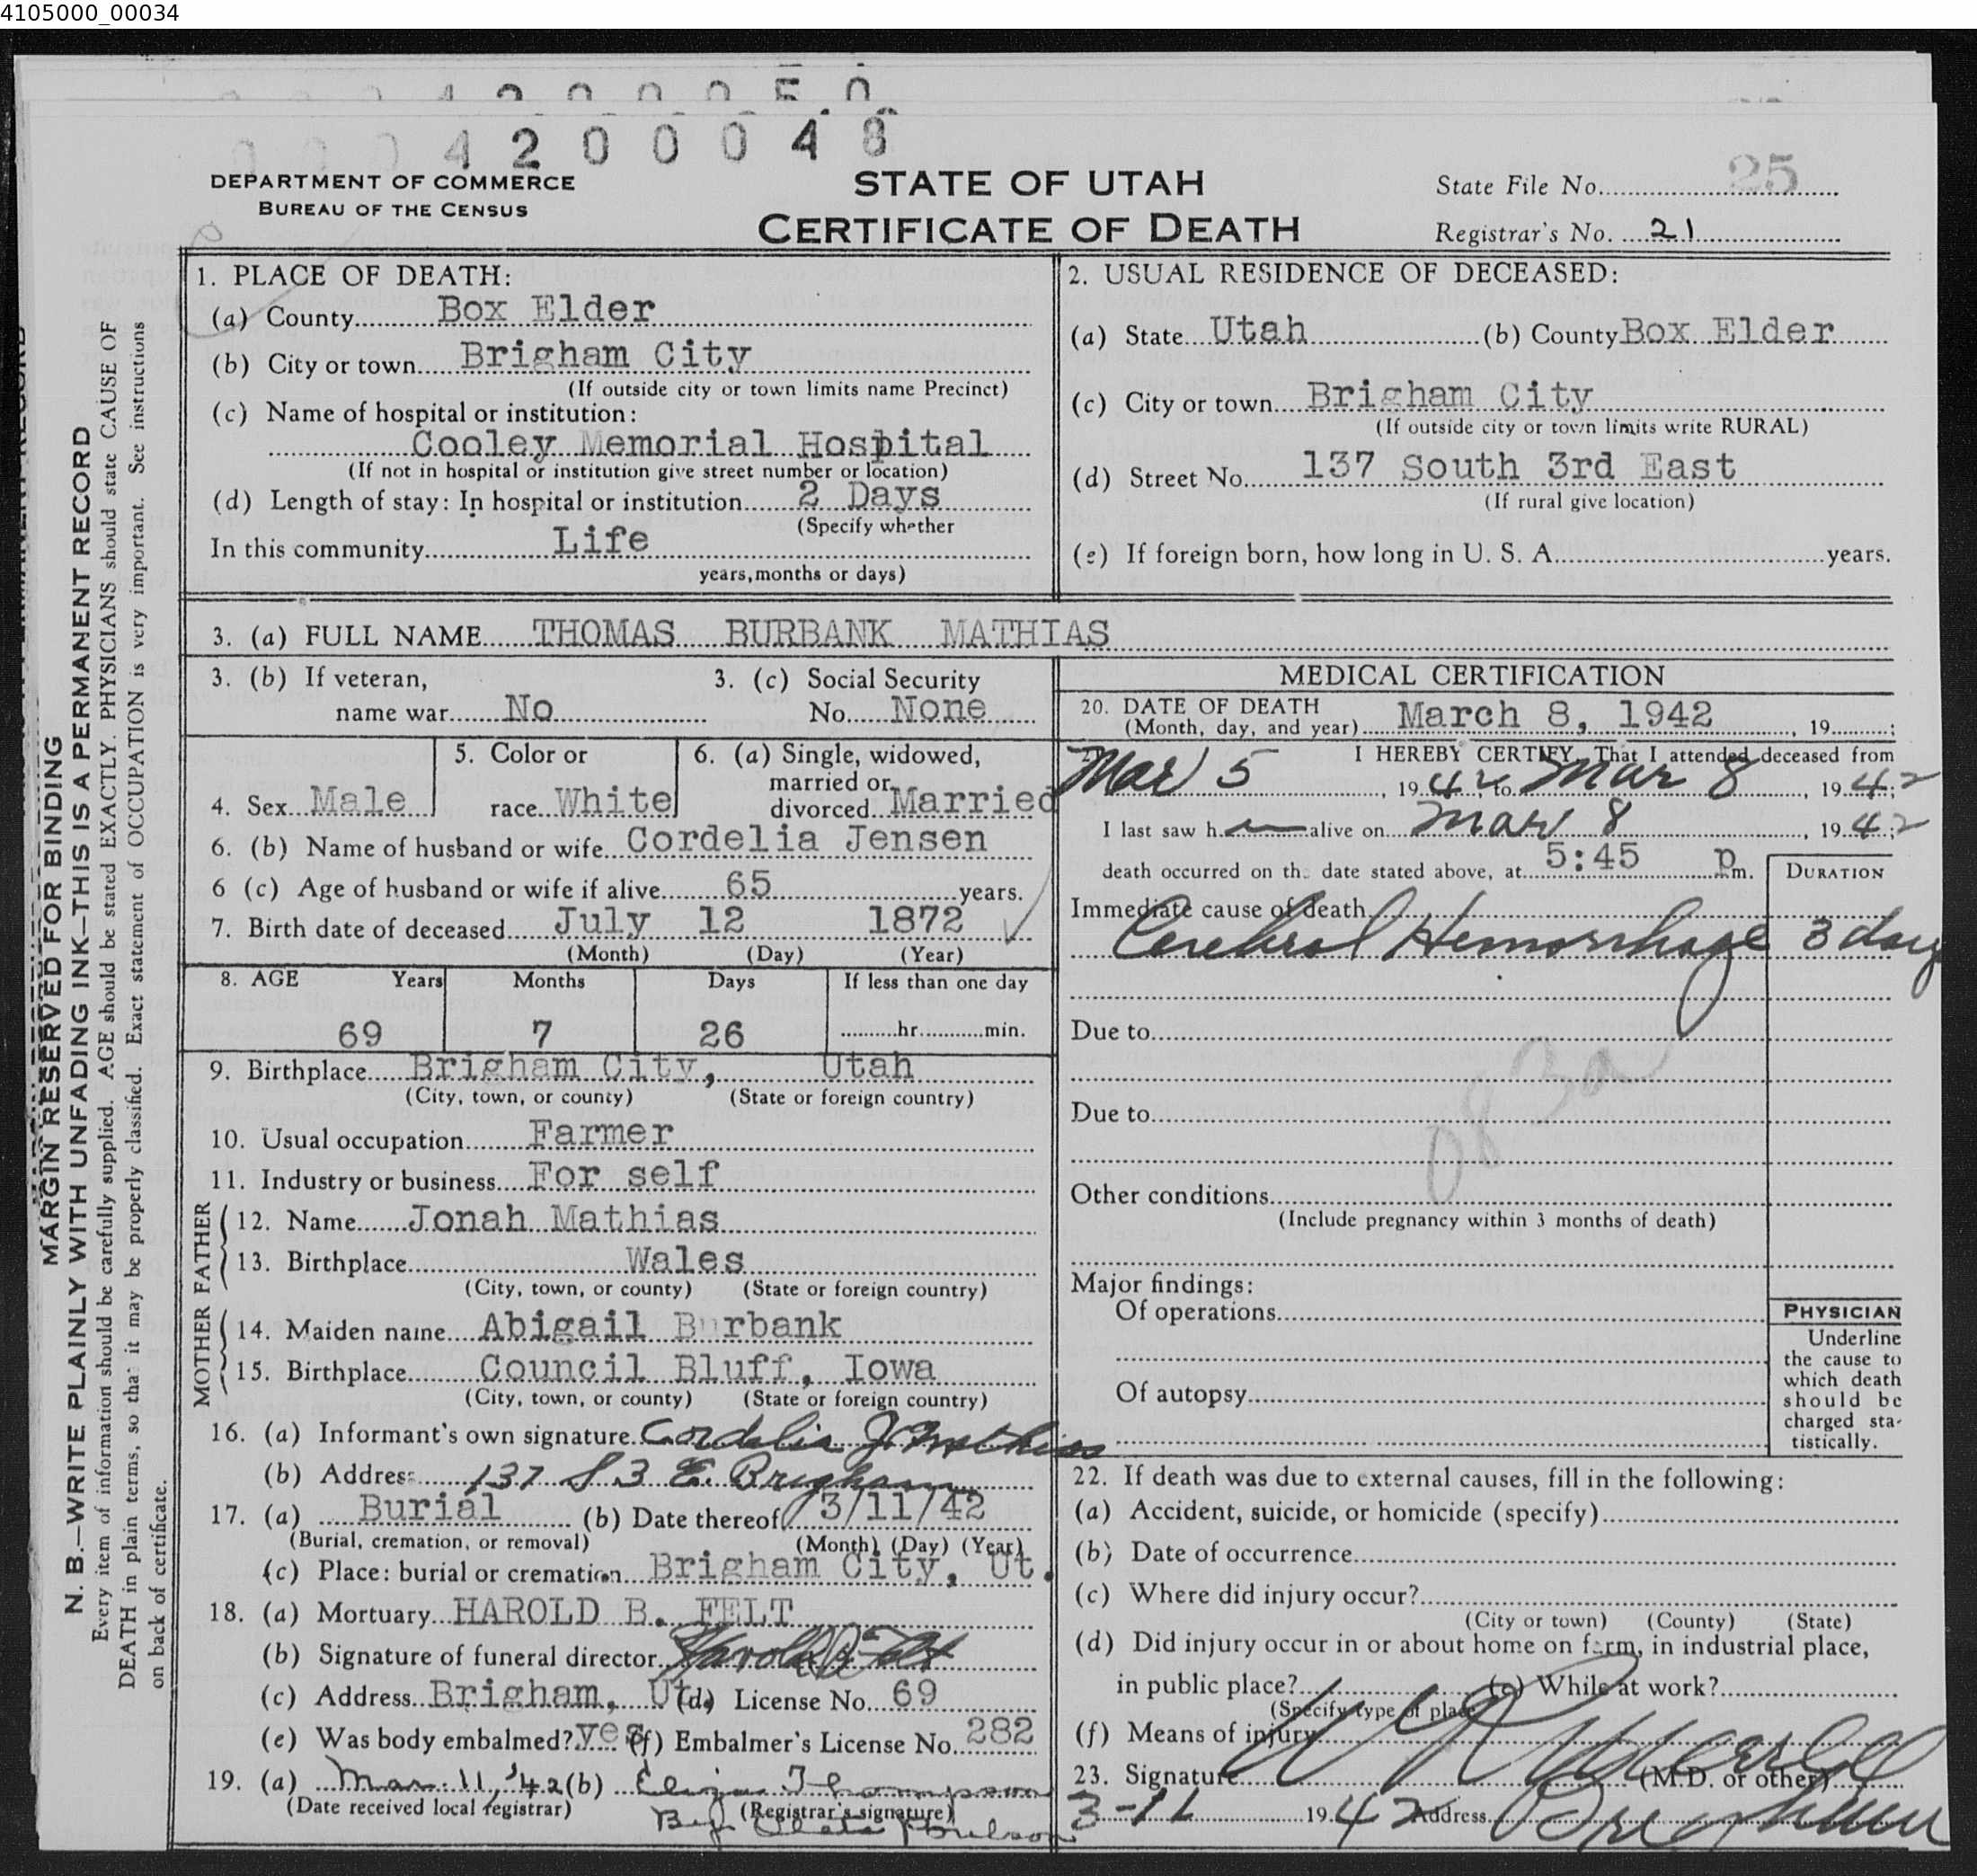 4105000_00034
4200048
DEPARTMENT OF COMMERCE
BUREAU OF THE CENSUS
STATE OF UTAH
CERTIFICATE OF DEATH
State File No. 25
Registrar's No. 21
MARGIN RESERVED FOR BINDING
N. B.—WRITE PLAINLY WITH UNFADING INK—THIS IS A PERMANENT RECORD
Every item of information should be carefully supplied. AGE should be stated EXACTLY. PHYSICIANS should state CAUSE OF
DEATH in plain terms, so that it may be properly classified. Exact statement of OCCUPATION is very important. See instructions
on back of certificate.
1. PLACE OF DEATH:
(a) County Box Elder
(b) City or town Brigham City
(If outside city or town limits name Precinct)
(c) Name of hospital or institution:
Cooley Memorial Hospital
(If not in hospital or institution give street number or location)
(d) Length of stay: In hospital or institution 2 Days
(Specify whether
In this community Life
years, months or days)
2. USUAL RESIDENCE OF DECEASED:
(a) State Utah (b) County Box Elder
(c) City or town Brigham City
(If outside city or town limits write RURAL)
(d) Street No. 137 South 3rd East
(If rural give location)
(e) If foreign born, how long in U. S. A. years.
3. (a) FULL NAME THOMAS BURBANK MATHIAS
3. (b) If veteran,
name war No
3. (c) Social Security
No. None
4. Sex Male
5. Color or
race White
6. (a) Single, widowed,
married or
divorced Married
6. (b) Name of husband or wife Cordelia Jensen
6 (c) Age of husband or wife if alive 65 years.
7. Birth date of deceased July 12 1872
(Month) (Day) (Year)
8. AGE Years Months Days If less than one day
69 7 26 hr. min.
9. Birthplace Brigham City, Utah
(City, town, or county) (State or foreign country)
10. Usual occupation Farmer
11. Industry or business For self
FATHER
12. Name Jonah Mathias
13. Birthplace Wales
(City, town, or county) (State or foreign country)
MOTHER
14. Maiden name Abigail Burbank
15. Birthplace Council Bluff, Iowa
(City, town, or county) (State or foreign country)
16. (a) Informant's own signature Cordelia J. Mathias
(b) Address 137 S 3 E. Brigham
17. (a) Burial (b) Date thereof 3/11/42
(Burial, cremation, or removal) (Month) (Day) (Year)
(c) Place: burial or cremation Brigham City, Ut.
18. (a) Mortuary HAROLD B. FELT
(b) Signature of funeral director Harold B. Felt
(c) Address Brigham, Ut. (d) License No. 69
(e) Was body embalmed? yes (f) Embalmer's License No. 282
19. (a) Mar. 11, '42 (b) Eliza Thompson
(Date received local registrar) (Registrar's signature)
By Poulson
MEDICAL CERTIFICATION
20. DATE OF DEATH
(Month, day, and year) March 8, 1942, 19 ;
I HEREBY CERTIFY, That I attended deceased from
Mar 5, 1942, to Mar 8, 1942;
I last saw h alive on Mar 8, 1942;
death occurred on the date stated above, at 5:45 P m.
DURATION
Immediate cause of death
Cerebral Hemorrhage 3 days
Due to
083a
Due to
Other conditions
(Include pregnancy within 3 months of death)
Major findings:
Of operations
Of autopsy
PHYSICIAN
Underline
the cause to
which death
should be
charged sta-
tistically.
22. If death was due to external causes, fill in the following:
(a) Accident, suicide, or homicide (specify)
(b) Date of occurrence
(c) Where did injury occur?
(City or town) (County) (State)
(d) Did injury occur in or about home on farm, in industrial place,
in public place? (e) While at work?
(Specify type of place)
(f) Means of injury
23. Signature (M.D. or other)
3-11 1942 Address Brigham